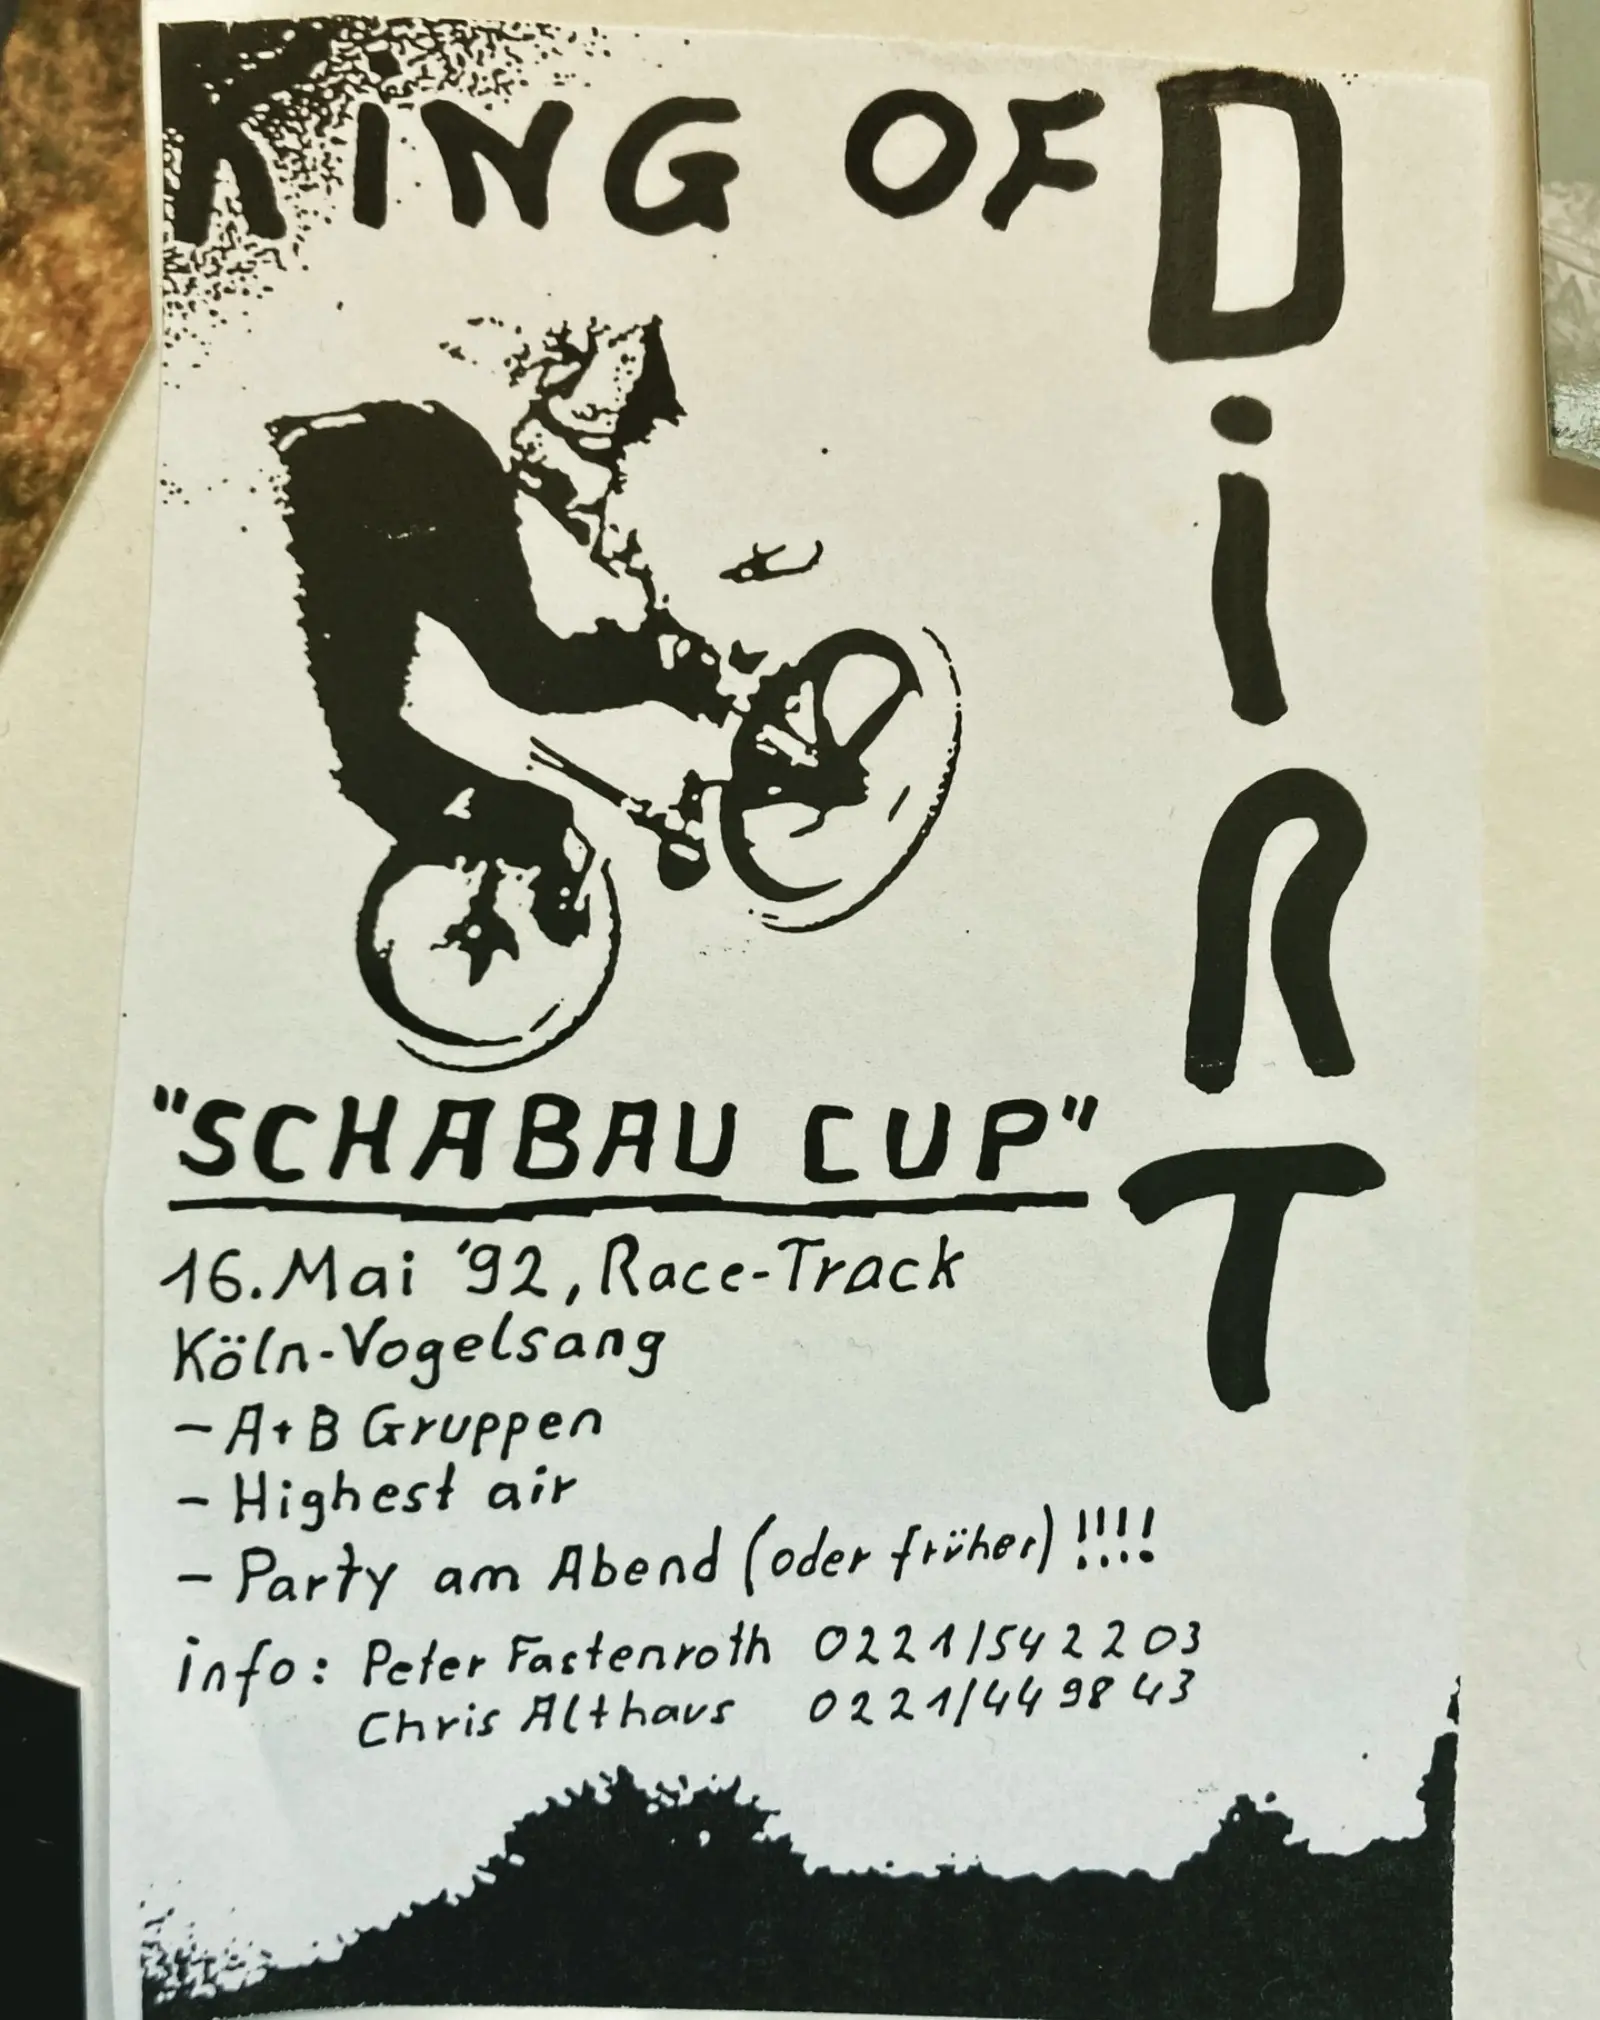 KING OF DiRT
"SCHABAU CUP"
16. Mai '92, Race-Track
Köln-Vogelsang
- A+B Gruppen
- Highest air
- Party am Abend (oder früher) !!!!
info: Peter Fastenroth 0221/542203
Chris Althaus 0221/449843